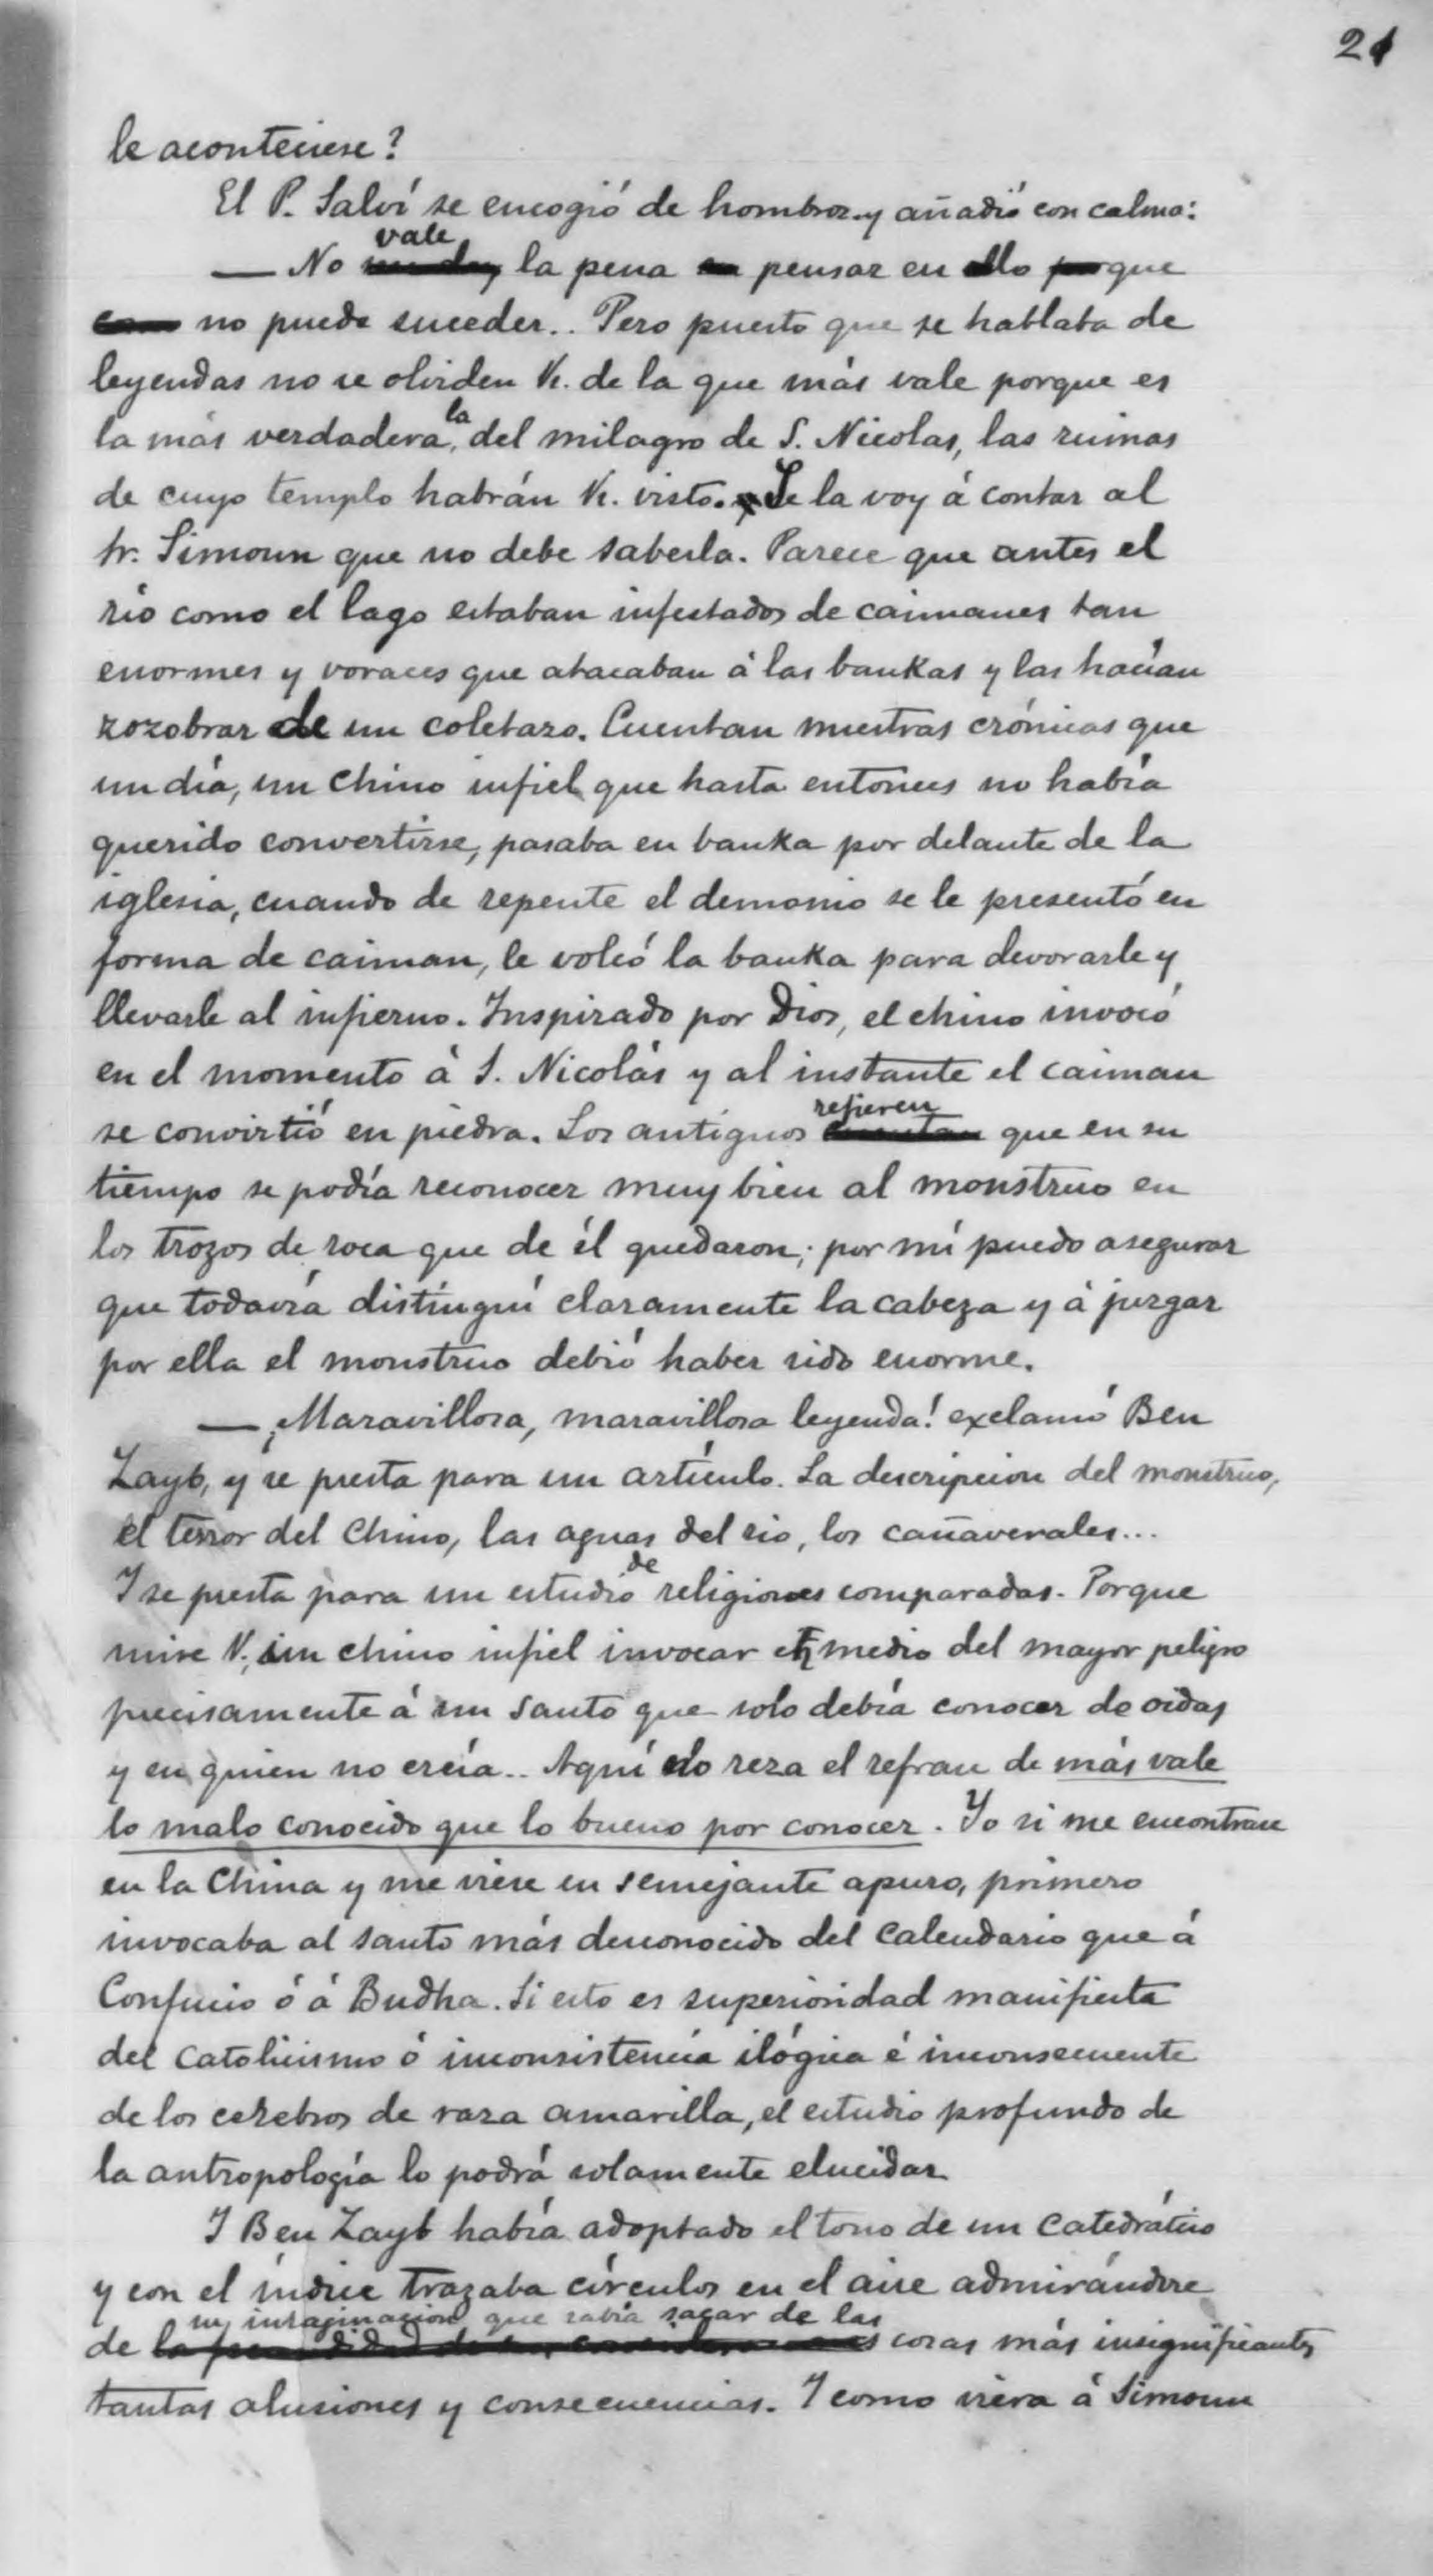 21
le aconteciese?
El P. Salví se encogió de hombros y añadió con calma:
— No vale la pena pensar en ello que
no puede suceder.. Pero puesto que se hablaba de
leyendas no se olviden VV. de la que más vale porque es
la más verdadera, la del milagro de S. Nicolas, las ruinas
de cuyo templo habrán VV. visto. Se la voy á contar al
Sr. Simoun que no debe saberla. Parece que antes el
río como el lago estaban infestados de caimanes tan
enormes y voraces que atacaban á las bankas y las hacían
zozobrar de un coletazo. Cuentan nuestras crónicas que
un día, un chino infiel que hasta entonces no había
querido convertirse, pasaba en banka por delante de la
iglesia, cuando de repente el demonio se le presentó en
forma de caiman, le volcó la banka para devorarle y
llevarle al infierno. Inspirado por Dios, el chino invocó
en el momento á S. Nicolás y al instante el caiman
se convirtió en piedra. Los antiguos refieren que en su
tiempo se podía reconocer muy bien al monstruo en
los trozos de roca que de él quedaron; por mí puedo asegurar
que todavía distinguí claramente la cabeza y á juzgar
por ella el monstruo debió haber sido enorme.
— ¡Maravillosa, maravillosa leyenda! exclamó Ben
Zayb, y se presta para un artículo. La descripcion del monstruo,
el terror del chino, las aguas del rio, los cañaverales...
Y se presta para un estudio de religiones comparadas. Porque
mire V., un chino infiel invocar en medio del mayor peligro
precisamente á un santo que solo debía conocer de oidas
y en quien no creía.. Aquí no reza el refran de más vale
lo malo conocido que lo bueno por conocer. Yo si me encontrase
en la China y me viese en semejante apuro, primero
invocaba al santo más desconocido del calendario que á
Confucio ó á Budha. Si esto es superioridad manifiesta
del catolicismo ó inconsistencia ilógica é inconsecuente
de los cerebros de raza amarilla, el estudio profundo de
la antropología lo podrá solamente elucidar
Y Ben Zayb había adoptado el tono de un catedrático
y con el índice trazaba círculos en el aire admirándose
de su imaginacion que sabía sacar de las cosas más insignificantes
tantas alusiones y consecuencias. Y como viera á Simoun